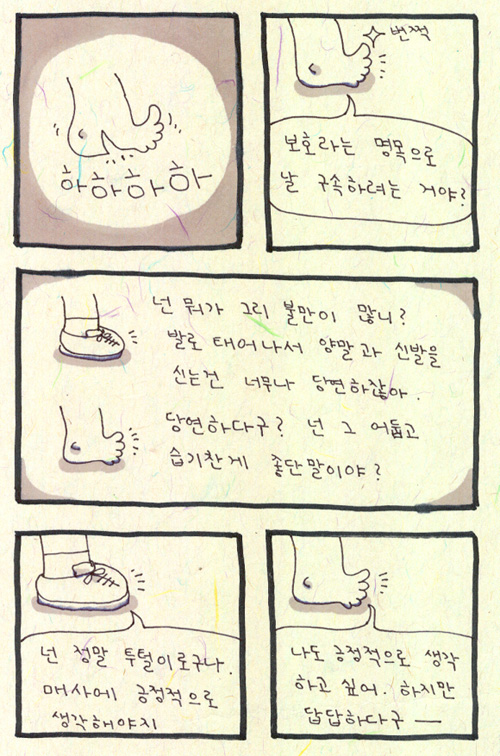 하하하하
번쩍
보호라는 명목으로
날 구속하려는 거야?
넌 뭐가 그리 불만이 많니?
발로 태어나서 양말과 신발을
신는건 너무나 당연하잖아.
당연하다구? 넌 그 어둡고
습기찬게 좋단말이야?
넌 정말 투덜이로구나.
매사에 긍정적으로
생각해야지
나도 긍정적으로 생각
하고 싶어. 하지만
답답하다구 —